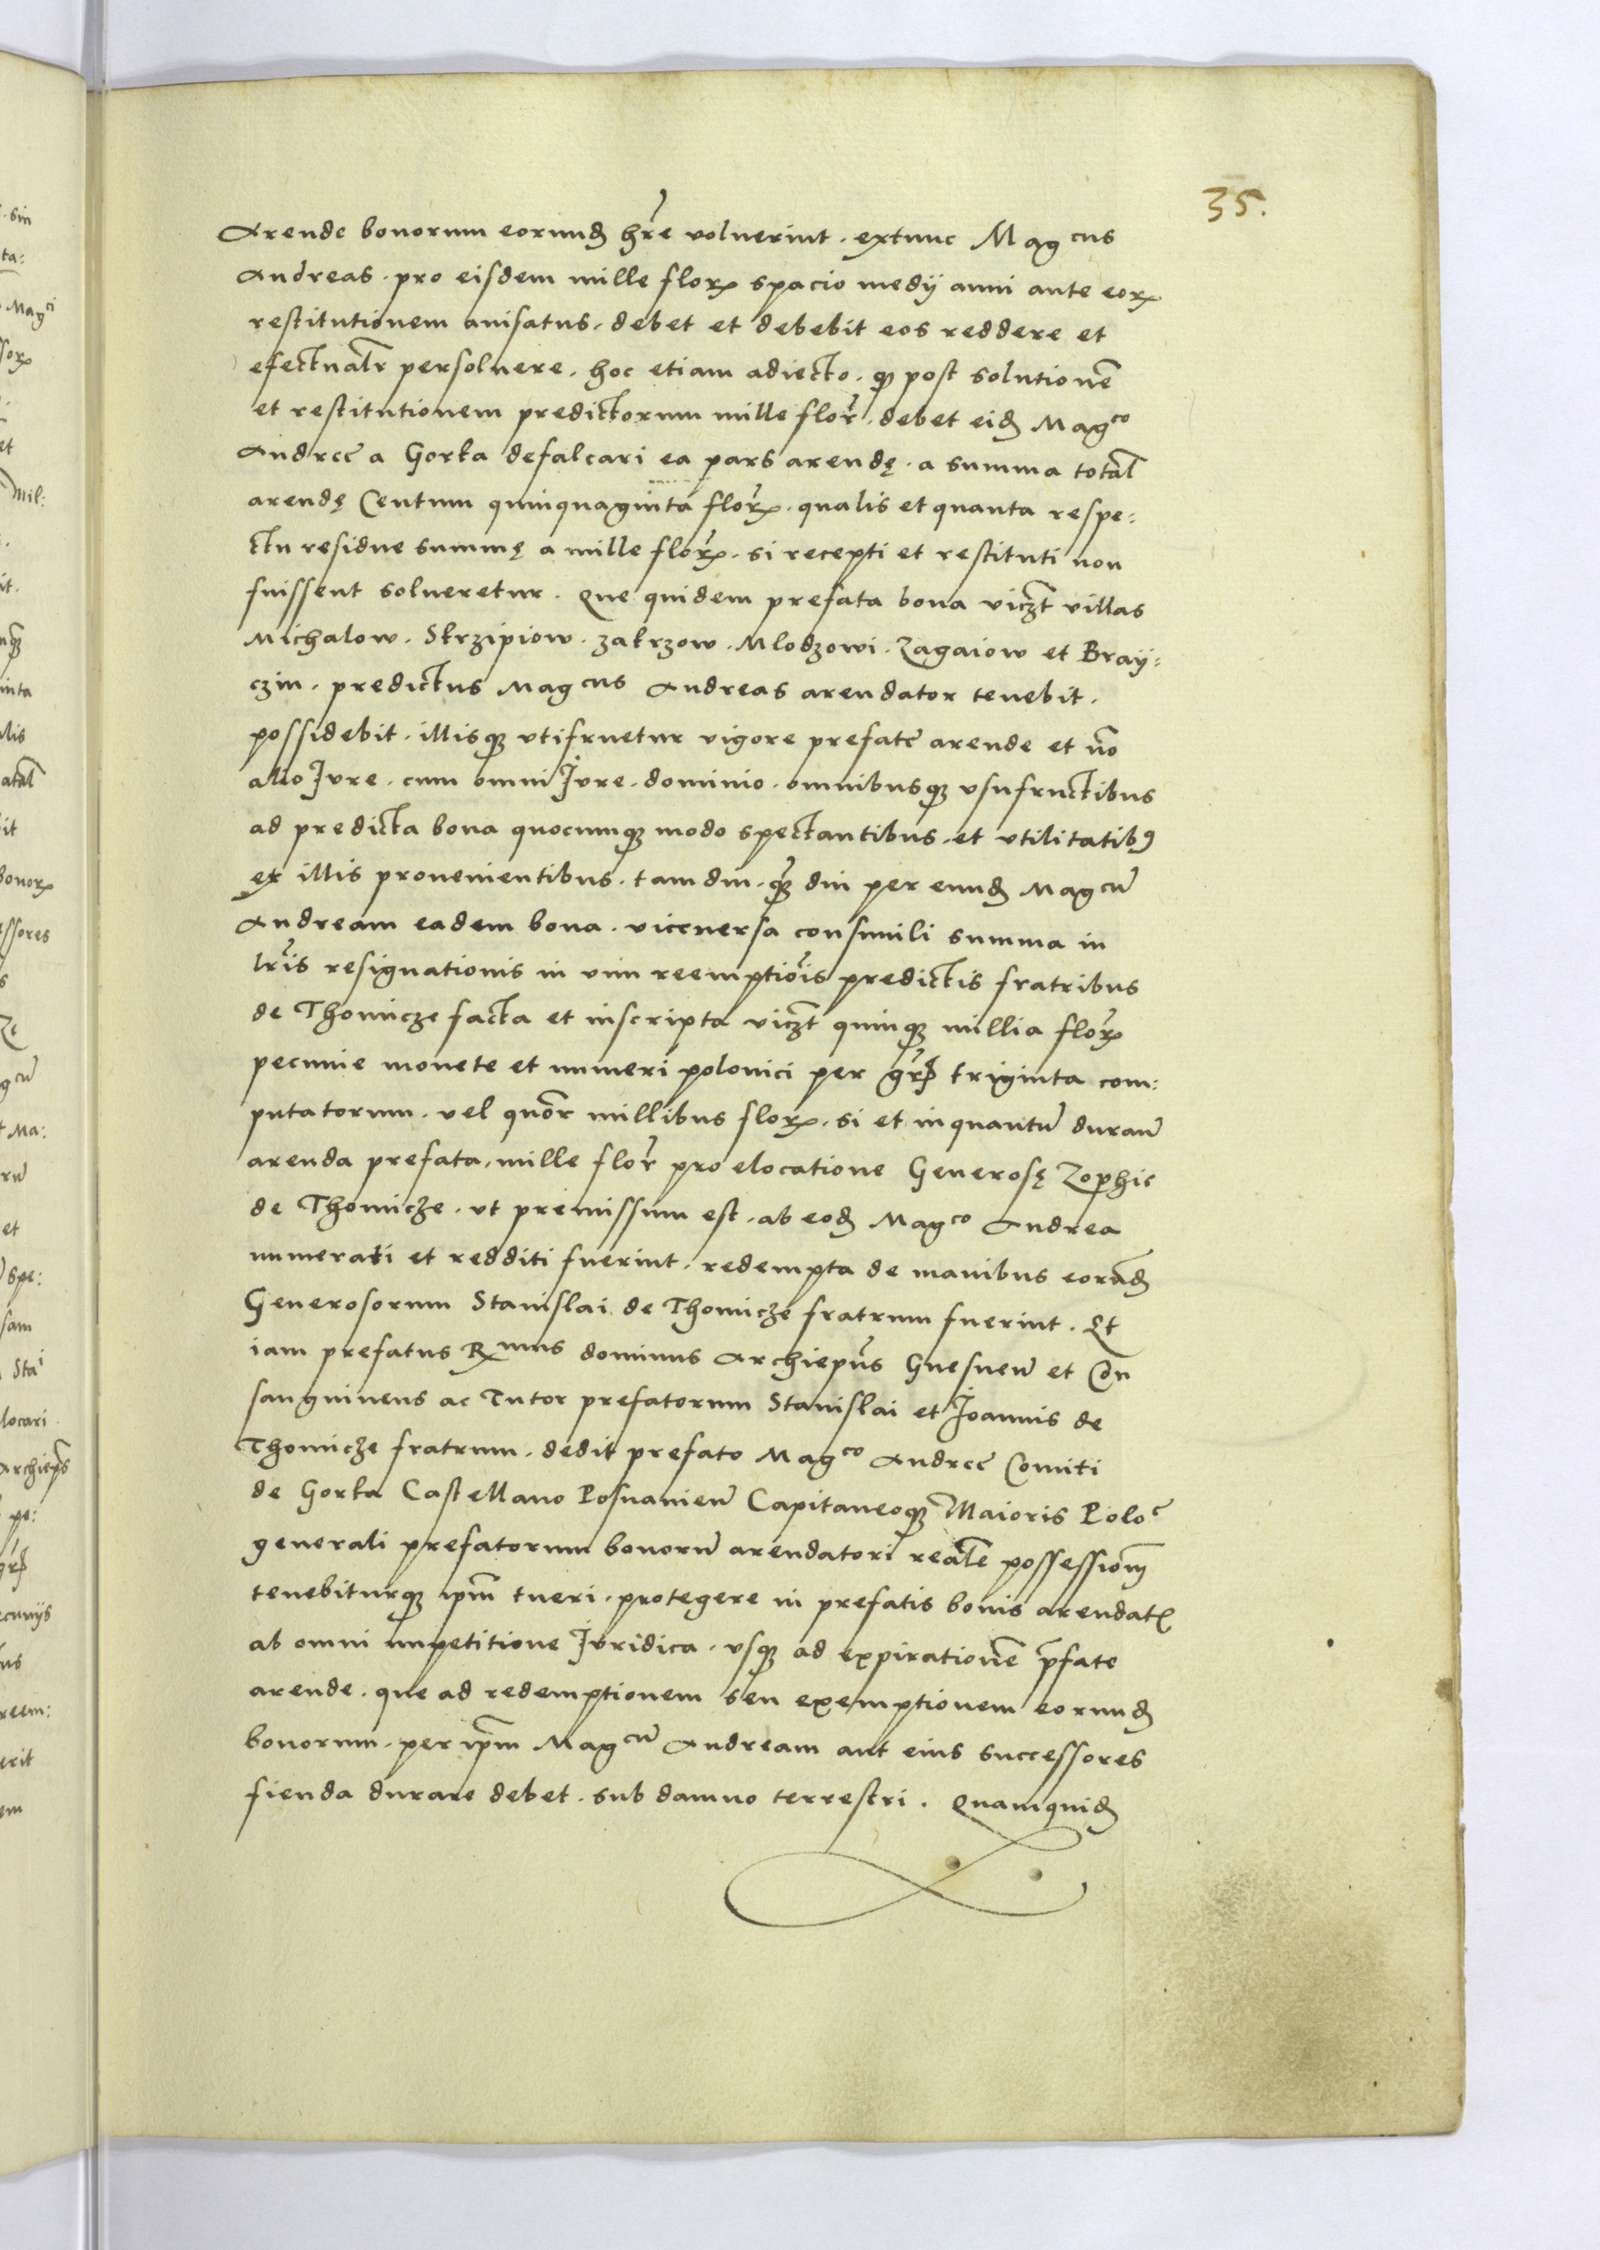 35.
Arende bonorum eorund hre voluerint. extunc Magcus
Andreas. pro eisdem mille flor spacio medij anni ante eor
restitutionem auisatus. debet et debebit eos reddere et
efectualr persoluere. hoc etiam adiecto. q post solutione
et restitutionem predictorum mille flor. debet eid Magco
Andree a Gorka defalcari ea pars arendę. a summa total
arendę Centum quinquaginta flor. qualis et quanta respe:
ctu residue summę a mille flor. si recepti et restituti non
fuissent solueretur. Que quidem prefata bona viczt villas
Michalow. Skrzipiow. zakrzow. Mlodzowi. Zagaiow et Bray:
czin. predictus Magcus Andreas arendator tenebit.
possidebit. illisq vtifruetur vigore prefate arende et no
alio Jure. cum omni Jure. dominio. omnibusq vsufructibus
ad predicta bona quocumq modo spectantibus. et vtilitatib9
ex illis prouenientibus. tam diu. q diu per eund Magcu
Andream eadem bona. viceuersa consimili summa in
lris resignationis in vim reemptiois predictis fratribus
de Thomicze facta et inscripta viczt quinq millia flor
pecunie monete et numeri polonici per gr triginta com:
putatorum. vel quor millibus flor. si et inquantu duran
arenda prefata. mille flor pro elocatione Generosę Zophie
de Thomicze. vt premissum est. ab eod Magco Andrea
numerati et redditi fuerint. redempta de manibus eorund
Generosorum Stanislai de Thomicze fratrum fuerint. Et
iam prefatus Rmus dominus Archiepus Gnesnen et Con
sanguineus ac Tutor prefatorum Stanislai et Joannis de
Thomicze fratrum. dedit prefato Magco Andree Comiti
de Gorka Castellano Posnanien Capitaneoq Maioris Poloe
generali prefatorum bonoru arendatori reale possessiom
tenebiturq ipm tueri. protegere in prefatis bonis arendat
ab omni impetitione Juridica. vsq ad expiratione pfate
arende. que ad redemptionem seu exemptionem eorund
bonorum. per ipm Magcu Andream aut eius successores
fienda durare debet. sub damno terrestri. Quamquid